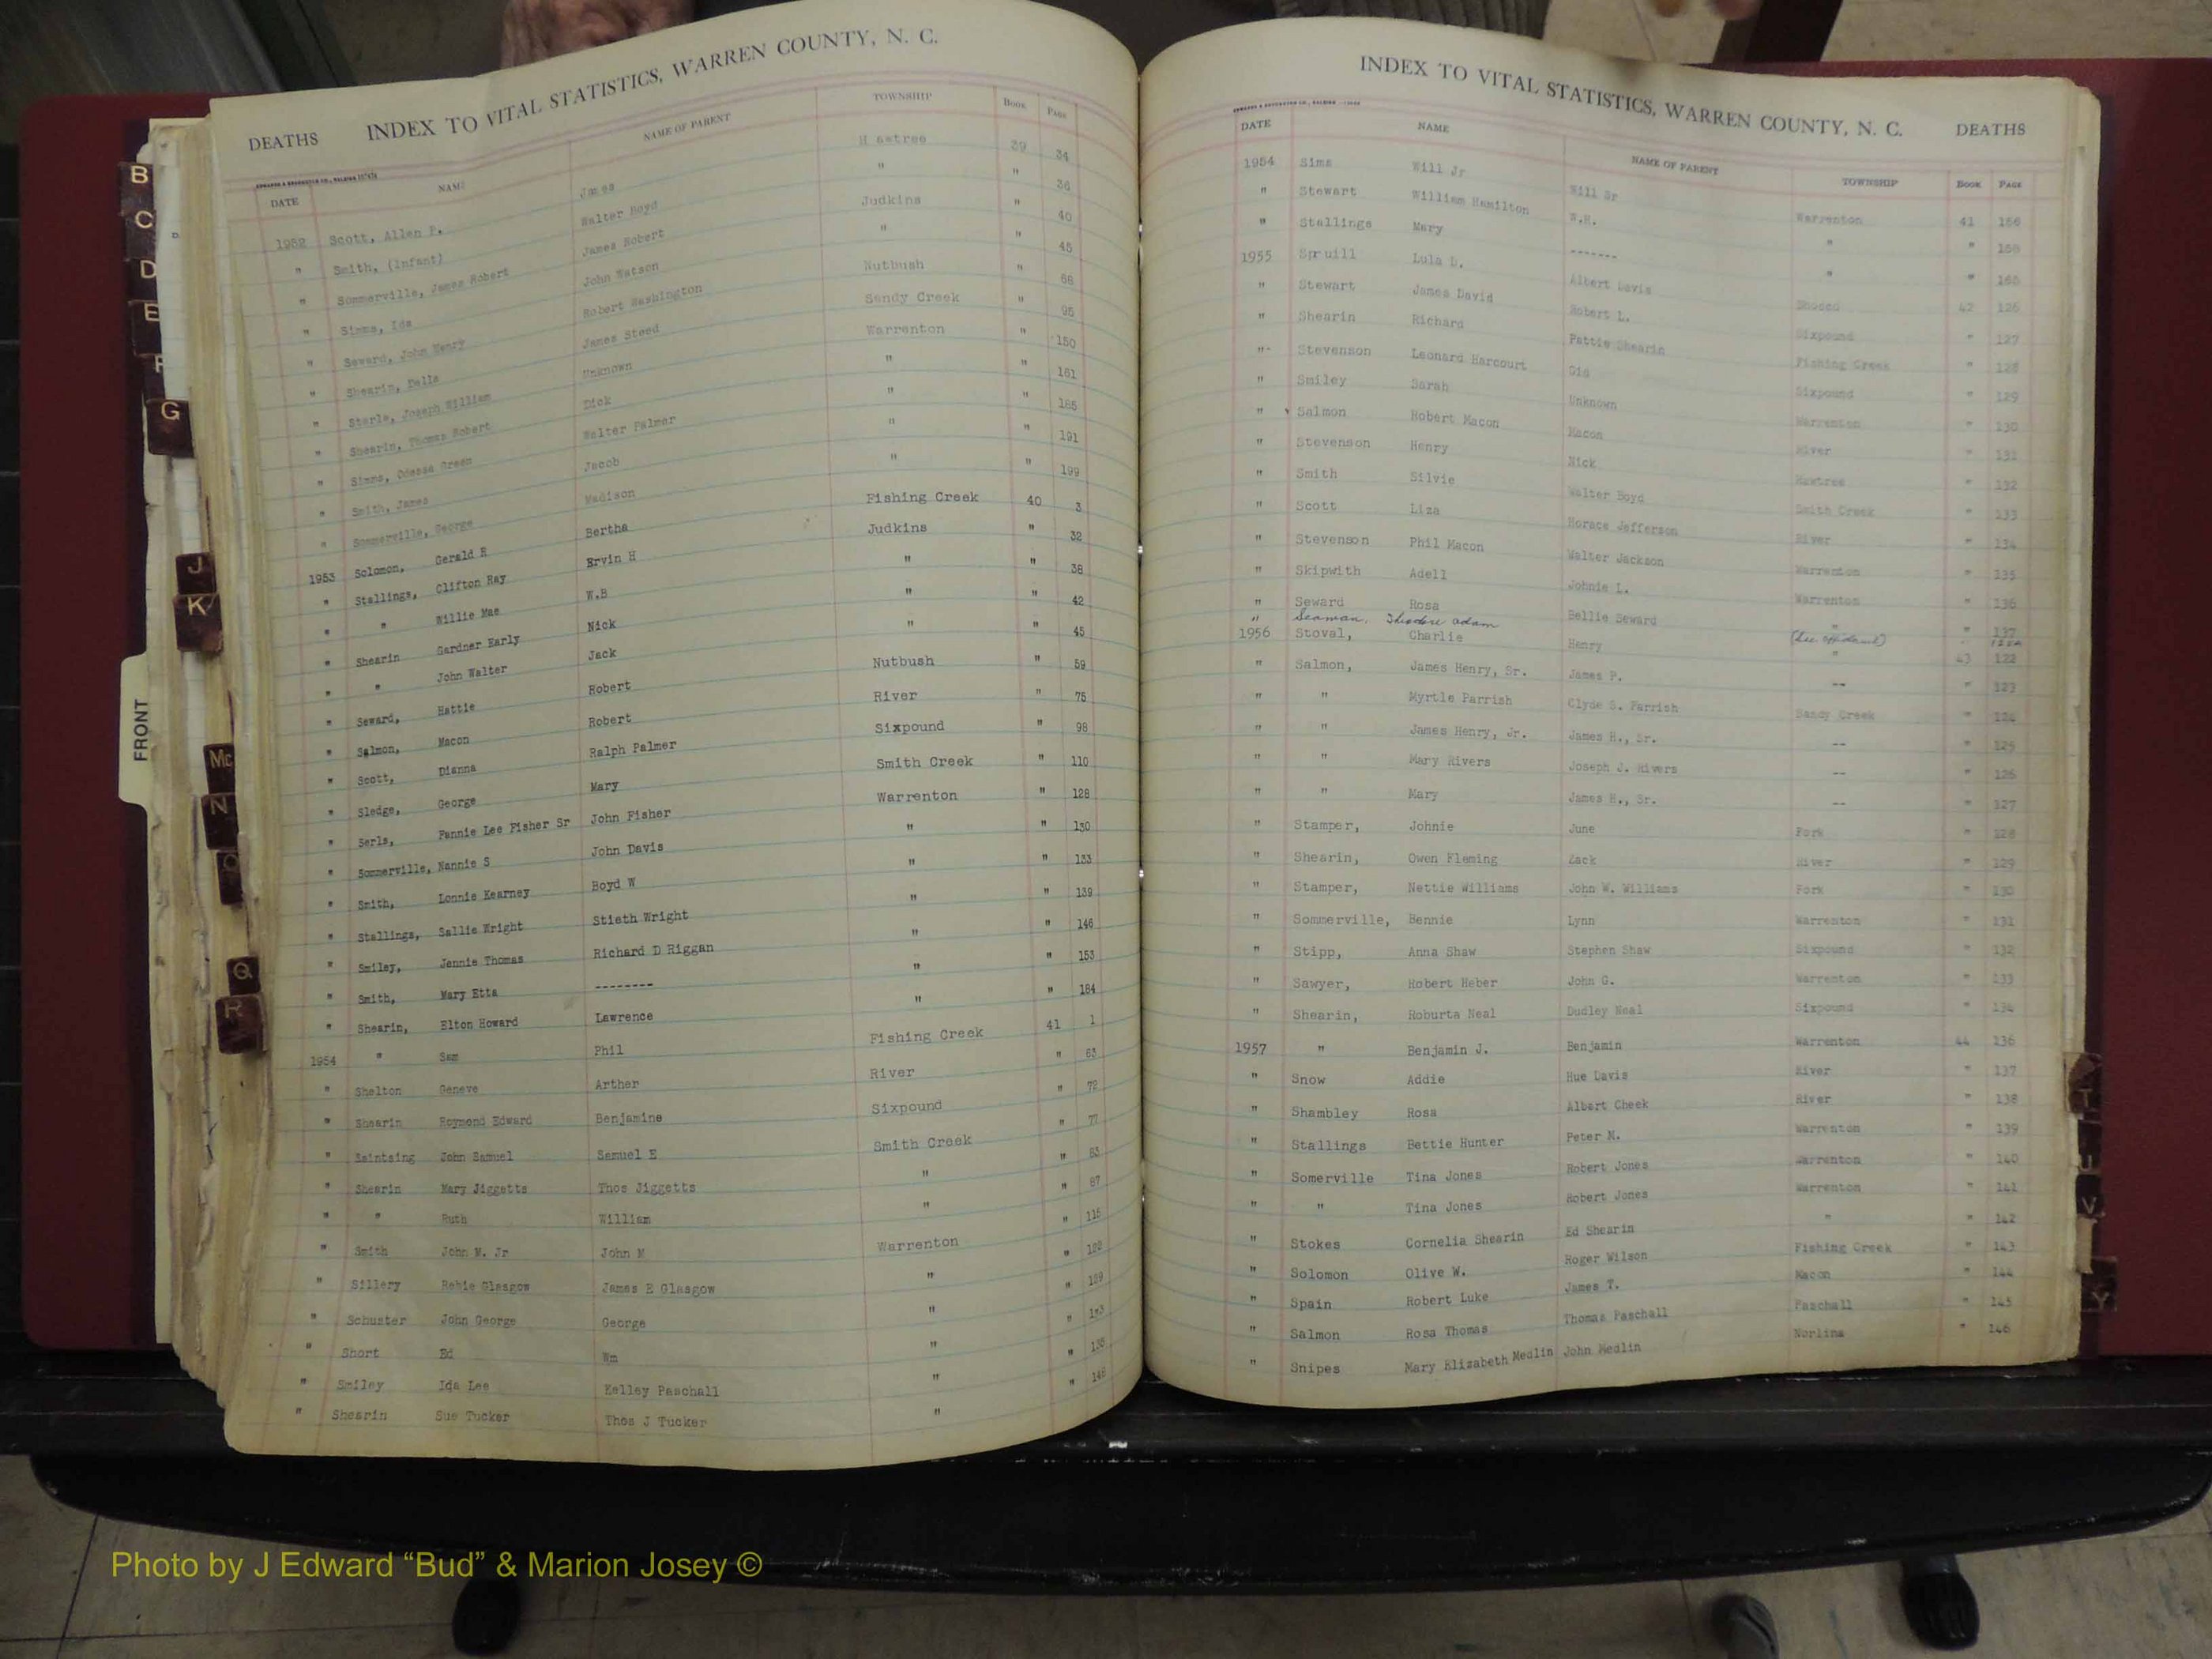 DEATHS INDEX TO VITAL STATISTICS, WARREN COUNTY, N. C.
DATE NAME NAME OF PARENT TOWNSHIP BOOK PAGE
1952 Scott, Allen P. James 39 34
" Smith, (Infant) Walter Boyd " " 36
" Sommerville, James Robert James Robert Judkins " 40
" Simms, Ida John Watson " " 45
" Seward, John Henry Robert Washington Nutbush " 68
" Shearin, Della James Steed Sandy Creek " 95
" Starls, Joseph William Unknown Warrenton " 150
" Shearin, Thomas Robert Dick " " 161
" Simms, Odessa Green Walter Palmer " " 185
" Smith, James Jacob " " 191
" Sommerville, George Madison " " 199
1953 Solomon, Gerald R Bertha Fishing Creek 40 3
" Stallings, Clifton Ray Ervin H Judkins " 32
" " Willie Mae W.B " " 38
" Shearin Gardner Early Nick " " 42
" " John Walter Jack " " 45
" Seward, Hattie Robert Nutbush " 59
" Salmon, Macon Robert River " 75
" Scott, Dianna Ralph Palmer Sixpound " 98
" Sledge, George Mary Smith Creek " 110
" Serls, Fannie Lee Fisher Sr John Fisher Warrenton " 128
" Sommerville, Nannie S John Davis " " 130
" Smith, Lonnie Kearney Boyd W " " 133
" Stallings, Sallie Wright Stieth Wright " " 139
" Smiley, Jennie Thomas Richard D Riggan " " 146
" Smith, Mary Etta -------- " " 153
" Shearin, Elton Howard Lawrence " " 184
1954 " Sam Phil Fishing Creek 41 1
" Shelton Geneve Arther River " 63
" Shearin Roymond Edward Benjamine Sixpound " 72
" Saintsing John Samuel Samuel E Smith Creek " 77
" Shearin Mary Jiggetts Thos Jiggetts " " 83
" " Ruth William " " 87
" Smith John M. Jr John M Warrenton " 115
" Sillery Rebie Glasgow James E Glasgow " " 122
" Schuster John George George " " 129
" Short Ed Wm " " 133
" Smiley Ida Lee Kelley Paschall " " 138
" Shearin Sue Tucker Thos J Tucker " " 148
INDEX TO VITAL STATISTICS, WARREN COUNTY, N. C. DEATHS
DATE NAME NAME OF PARENT TOWNSHIP BOOK PAGE
1954 Sims Will Jr Will Sr Warrenton 41 156
" Stewart William Hamilton W.H. " " 158
" Stallings Mary ------- " " 160
1955 Spruill Lula D. Albert Davis Shocco 42 126
" Stewart James David Robert L. Sixpound " 127
" Shearin Richard Pattie Shearin Fishing Creek " 128
" Stevenson Leonard Harcourt Gid Sixpound " 129
" Smiley Sarah Unknown Warrenton " 130
" Salmon Robert Macon Macon River " 131
" Stevenson Henry Nick Hawtree " 132
" Smith Silvie Walter Boyd Smith Creek " 133
" Scott Liza Horace Jefferson River " 134
" Stevenson Phil Macon Walter Jackson Warrenton " 135
" Skipwith Adell Johnie L. Warrenton " 136
" Seward Rosa Bellie Seward " " 137
" Seaman, Theodore Adam (See Affidavit)
1956 Stoval, Charlie Henry " 43 122
" Salmon, James Henry, Sr. James P. -- " 123
" " Myrtle Parrish Clyde S. Parrish Sandy Creek " 124
" " James Henry, Jr. James H., Sr. -- " 125
" " Mary Rivers Joseph J. Rivers -- " 126
" " Mary James H., Sr. -- " 127
" Stamper, Johnie June Fork " 128
" Shearin, Owen Fleming Zack River " 129
" Stamper, Nettie Williams John W. Williams Fork " 130
" Sommerville, Bennie Lynn Warrenton " 131
" Stipp, Anna Shaw Stephen Shaw Sixpound " 132
" Sawyer, Robert Heber John G. Warrenton " 133
" Shearin, Roburta Neal Dudley Neal Sixpound " 134
1957 " Benjamin J. Benjamin Warrenton 44 136
" Snow Addie Hue Davis River " 137
" Shambley Rosa Albert Cheek River " 138
" Stallings Bettie Hunter Peter M. Warrenton " 139
" Somerville Tina Jones Robert Jones Warrenton " 140
" " Tina Jones Robert Jones Warrenton " 141
" Stokes Cornelia Shearin Ed Shearin " " 142
" Solomon Olive W. Roger Wilson Fishing Creek " 143
" Spain Robert Luke James T. Macon " 144
" Salmon Rosa Thomas Thomas Paschall Paschall " 145
" Snipes Mary Elizabeth Medlin John Medlin Norlina " 146
B
C
D
E
F
G
J
K
FRONT
Mc
N
O
Q
R
U
V
Y
Photo by J Edward “Bud” & Marion Josey ©